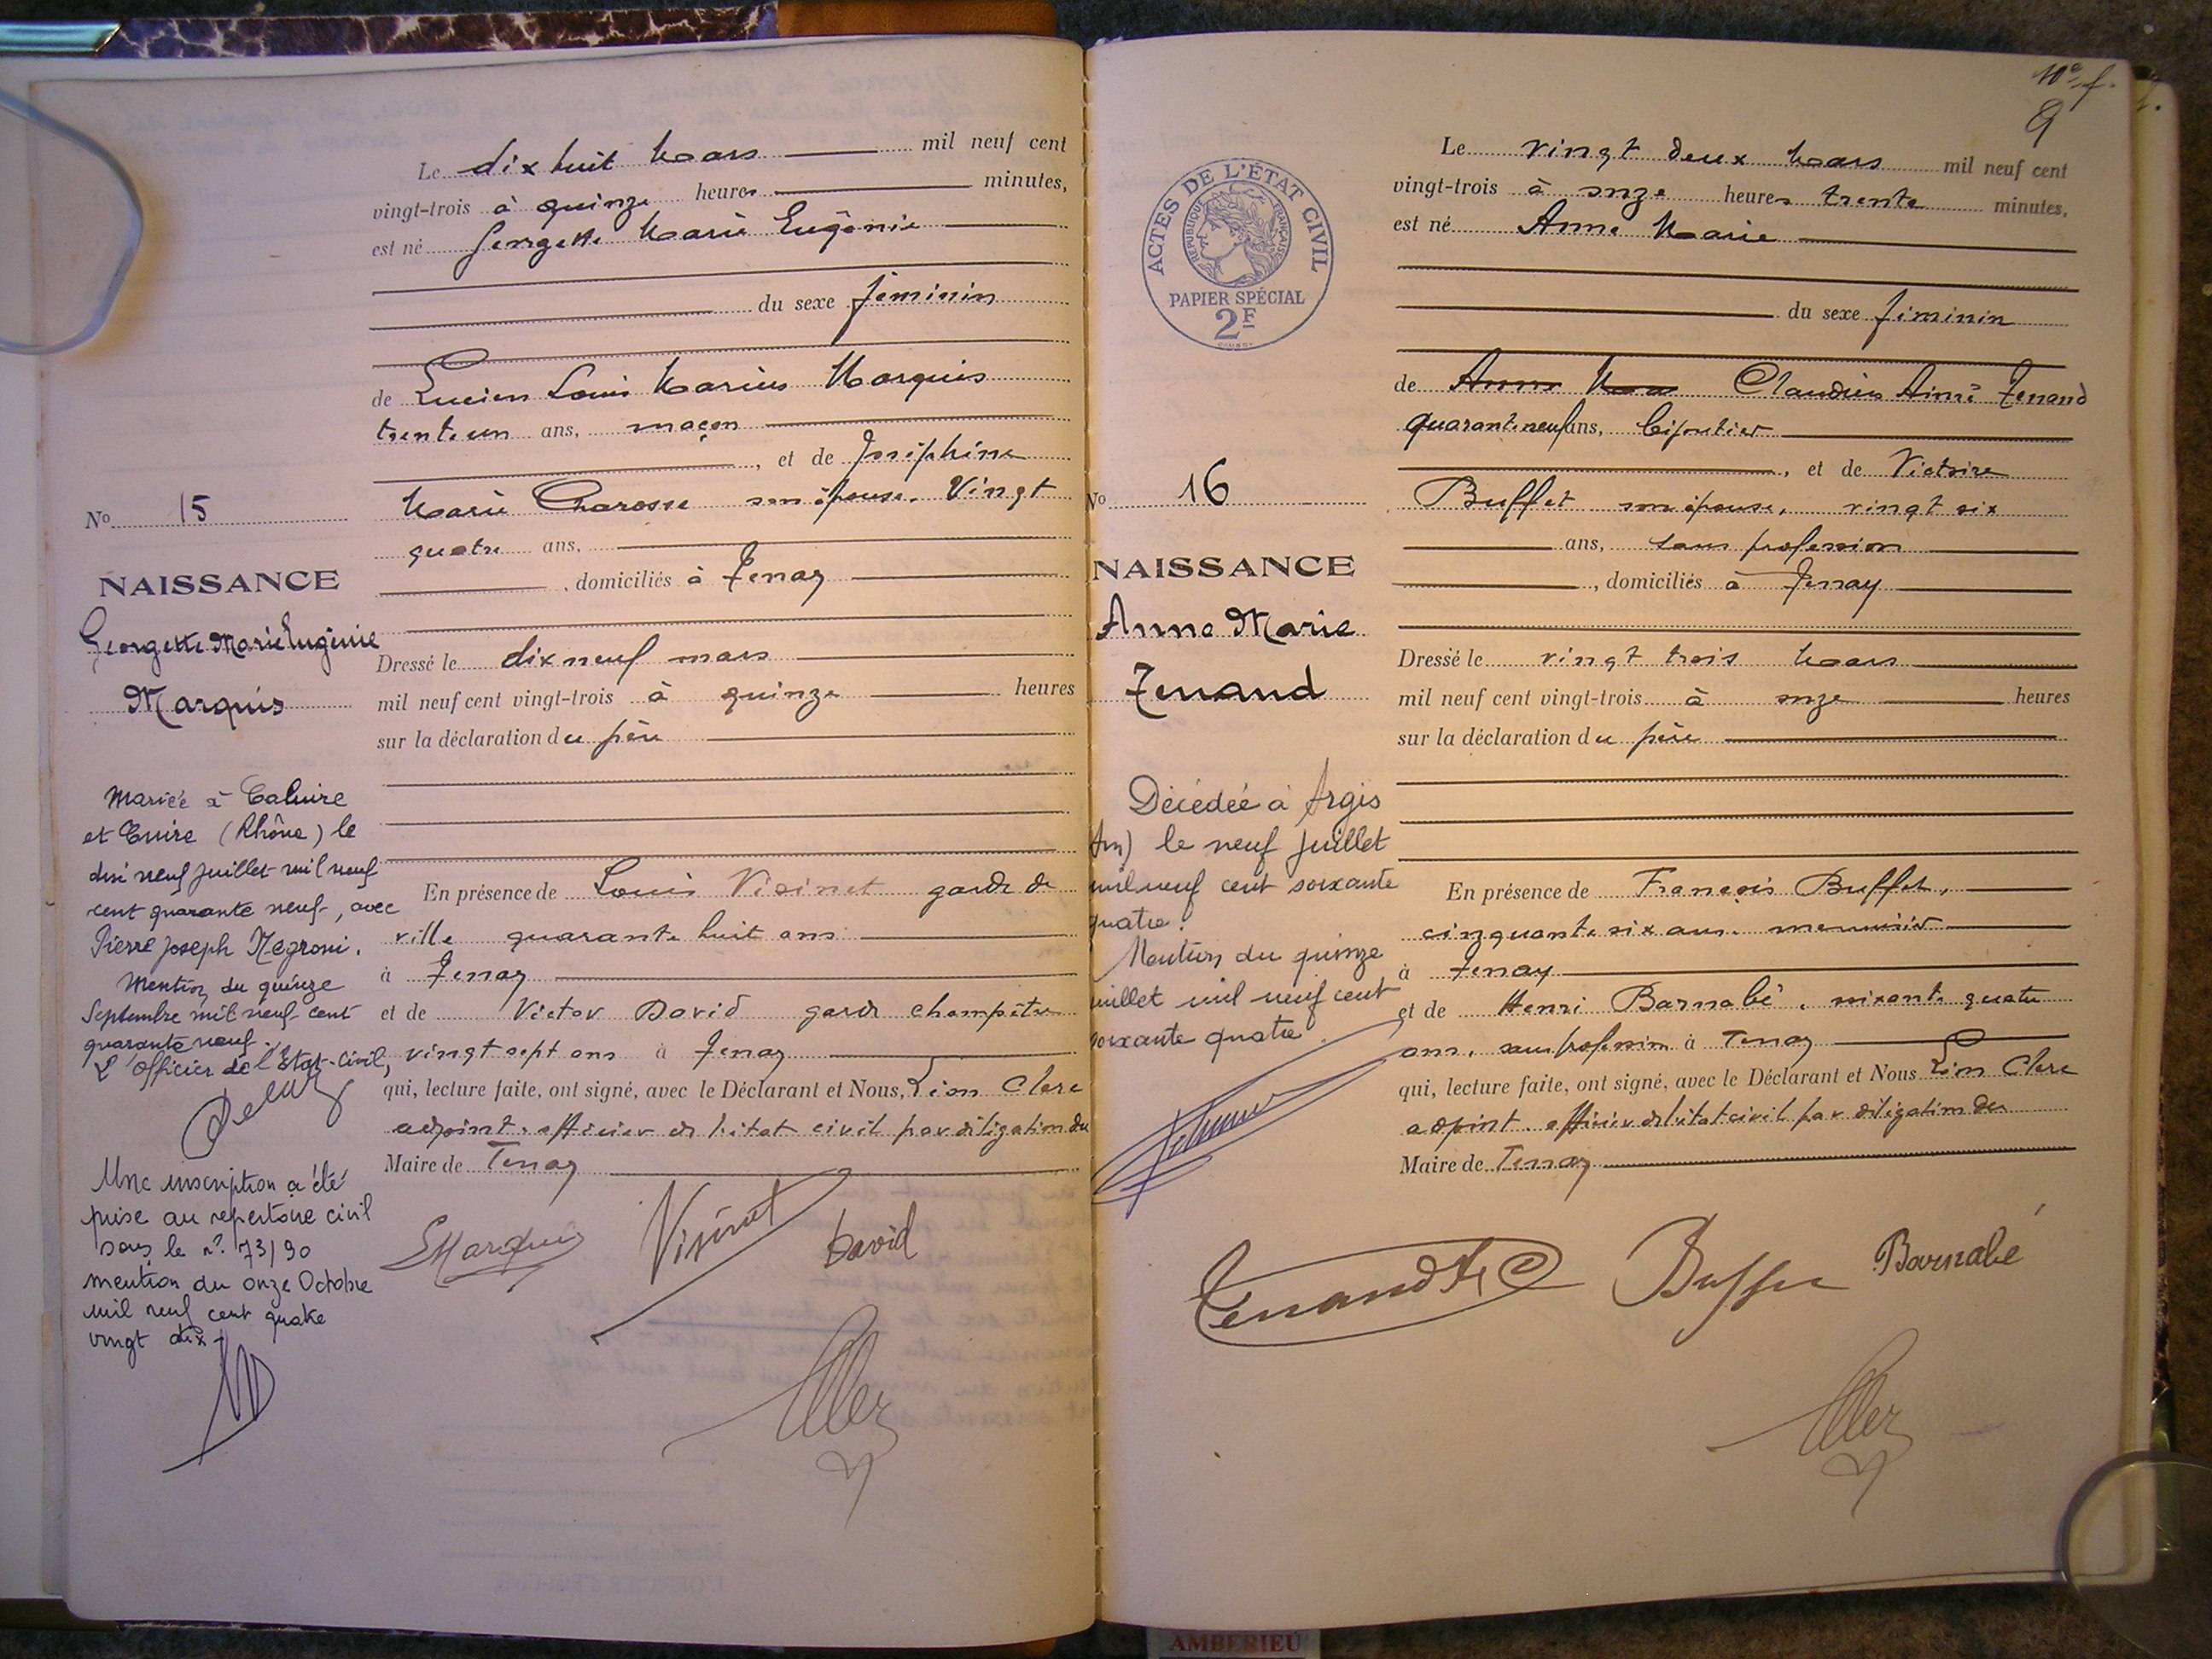 Le dix huit Mars mil neuf cent
vingt-trois à quinze heures minutes,
est né Georgette Marie Eugénie
du sexe féminin
de Lucien Louis Marius Marquis
trente un ans, maçon
, et de Joséphine
Marie Charosse son épouse. Vingt
quatre ans,
, domiciliés à Tenay
Dressé le dix neuf mars
mil neuf cent vingt-trois à quinze heures
sur la déclaration du père
En présence de Louis Visinet garde de
ville quarante huit ans
à Tenay
et de Victor David garde champêtre
vingt sept ans à Tenay
qui, lecture faite, ont signé, avec le Déclarant et Nous, Léon Clerc
adjoint. officier de l'état civil par délégation du
Maire de Tenay
Marquis Visinet David
No 15
NAISSANCE
Georgette Marie Eugénie
Marquis
Mariée à Caluire
et Cuire (Rhône) le
dix neuf juillet mil neuf
cent quarante neuf, avec
Pierre Joseph Negroni.
Mention du quinze
Septembre mil neuf cent
quarante neuf.
L'Officier de l'Etat-Civil,
Une inscription a été
prise au repertoire civil
sous le n° 73/90
mention du onze Octobre
mil neuf cent quatre
vingt dix
10e f.
9
ACTES DE L'ÉTAT CIVIL
RÉPUBLIQUE FRANÇAISE
PAPIER SPÉCIAL
2F
Le vingt deux Mars mil neuf cent
vingt-trois à onze heures trente minutes,
est né Anne Marie
du sexe féminin
de Anne Claudius Aimé Tenand
quarante neuf ans, bijoutier
, et de Victoire
Buffet son épouse, vingt six
ans, sans profession
, domiciliés à Tenay
Dressé le vingt trois Mars
mil neuf cent vingt-trois à onze heures
sur la déclaration du père
En présence de François Buffet,
cinquante six ans. menuisier
à Tenay
et de Henri Barnabé, soixante quatre
ans, sans profession à Tenay
qui, lecture faite, ont signé, avec le Déclarant et Nous Léon Clerc
adjoint. officier de l'état civil par délégation du
Maire de Tenay
Tenand Buffet Barnabé
No 16
NAISSANCE
Anne Marie
Tenand
Décédée à Argis
Ain) le neuf Juillet
mil neuf cent soixante
quatre.
Mention du quinze
juillet mil neuf cent
soixante quatre.
AMBERIEU